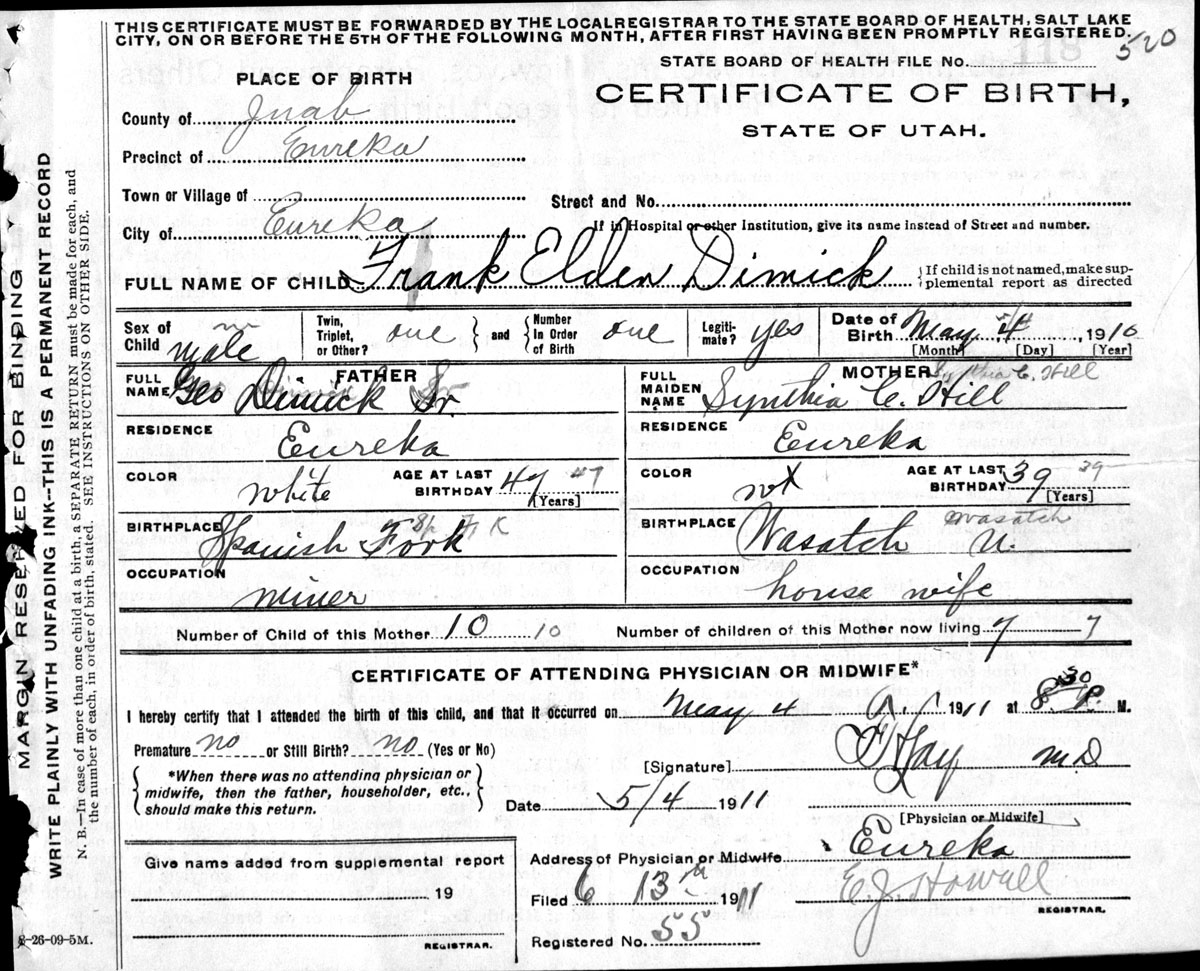 THIS CERTIFICATE MUST BE FORWARDED BY THE LOCAL REGISTRAR TO THE STATE BOARD OF HEALTH, SALT LAKE
CITY, ON OR BEFORE THE 5TH OF THE FOLLOWING MONTH, AFTER FIRST HAVING BEEN PROMPTLY REGISTERED.
520
STATE BOARD OF HEALTH FILE No. 118
PLACE OF BIRTH
CERTIFICATE OF BIRTH,
STATE OF UTAH.
County of Juab
Precinct of Eureka
Town or Village of
Street and No.
City of Eureka
If in Hospital or other Institution, give its name instead of Street and number.
FULL NAME OF CHILD Frank Elden Dimick {If child is not named, make sup-
plemental report as directed
Sex of Child male
Twin, Triplet, or Other? one } and { Number In Order of Birth one
Legiti-mate? yes
Date of Birth May 4 1910
[Month] [Day] [Year]
FATHER
FULL NAME Geo Dimick Sr.
MOTHER
FULL MAIDEN NAME Synthia C. Hill
C. Hill
RESIDENCE Eureka
RESIDENCE Eureka
COLOR white AGE AT LAST BIRTHDAY 47 47
[Years]
COLOR wt AGE AT LAST BIRTHDAY 39 39
[Years]
BIRTHPLACE Spanish Fork Sp F K
BIRTHPLACE Wasatch U. Wasatch
OCCUPATION miner
OCCUPATION house wife
Number of Child of this Mother 10 10 Number of children of this Mother now living 7 7
CERTIFICATE OF ATTENDING PHYSICIAN OR MIDWIFE*
I hereby certify that I attended the birth of this child, and that it occurred on May 4 1911 at 8 30 P. M.
Premature no or Still Birth? no (Yes or No)
[Signature] MD
{ *When there was no attending physician or
midwife, then the father, householder, etc.,
should make this return. }
Date 5/4 1911
[Physician or Midwife]
Give name added from supplemental report
19
REGISTRAR.
Address of Physician or Midwife Eureka
Filed 6 13th 1911 E.J. Howell
REGISTRAR.
Registered No. 55
MARGAN RESERVED FOR BINDING
WRITE PLAINLY WITH UNFADING INK--THIS IS A PERMANENT RECORD
N. B.—In case of more than one child at a birth, a SEPARATE RETURN must be made for each, and
the number of each, in order of birth, stated. SEE INSTRUCTIONS ON OTHER SIDE.
-26-09-5M.